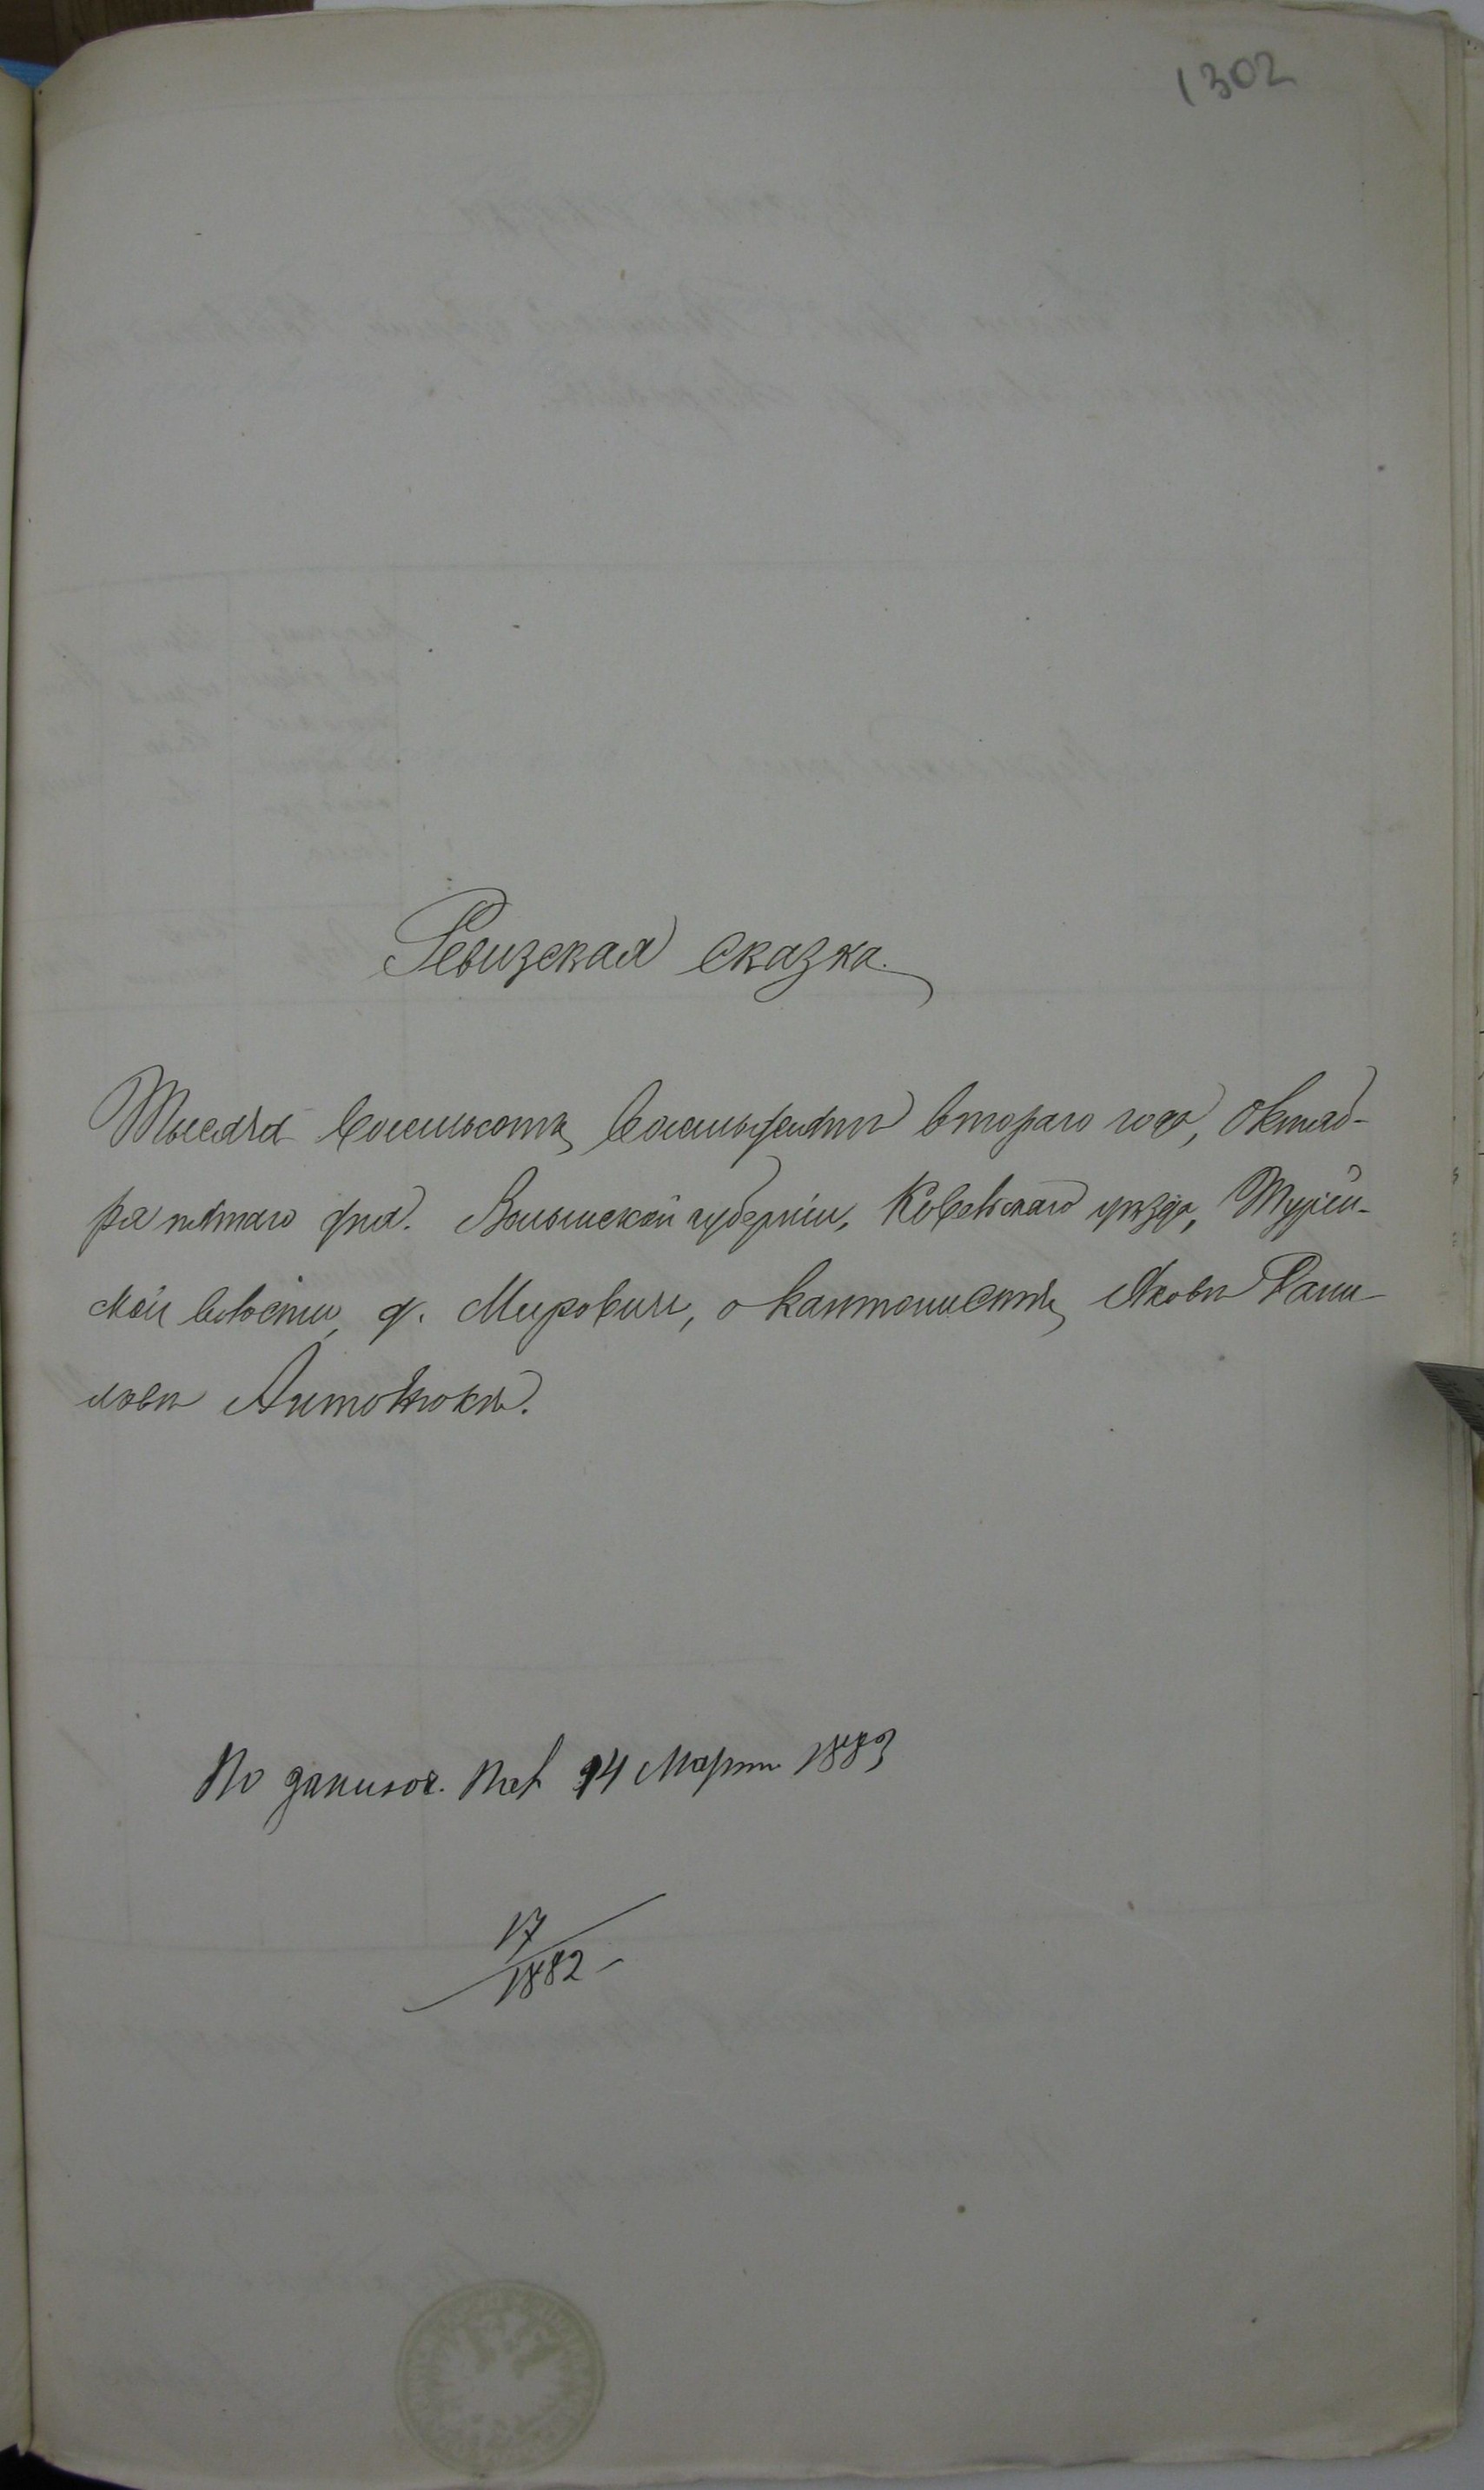 1302
Ревизская сказка.
Тысяча восемьсотъ восемьдесятъ втораго года, октяб-
ря пятаго дня. Волынской губерніи, Ковельскаго уѣзда, Турій-
ской волости, д. Мировичи, о кантонистѣ Яковѣ Дани-
ловѣ Антонюкѣ.
По 14 Марта 1883
17
1882